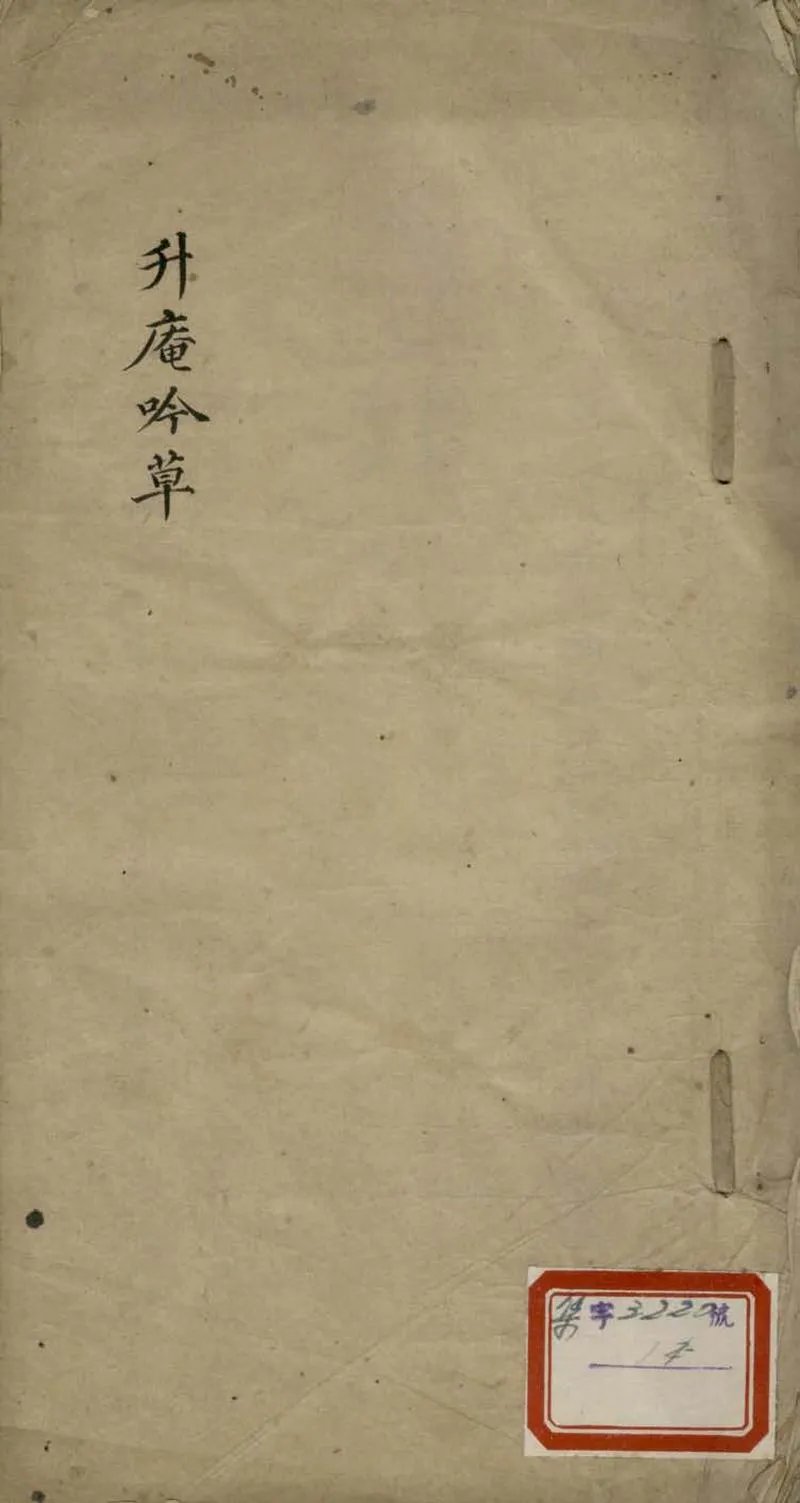 升庵吟草
集字3220號
1本